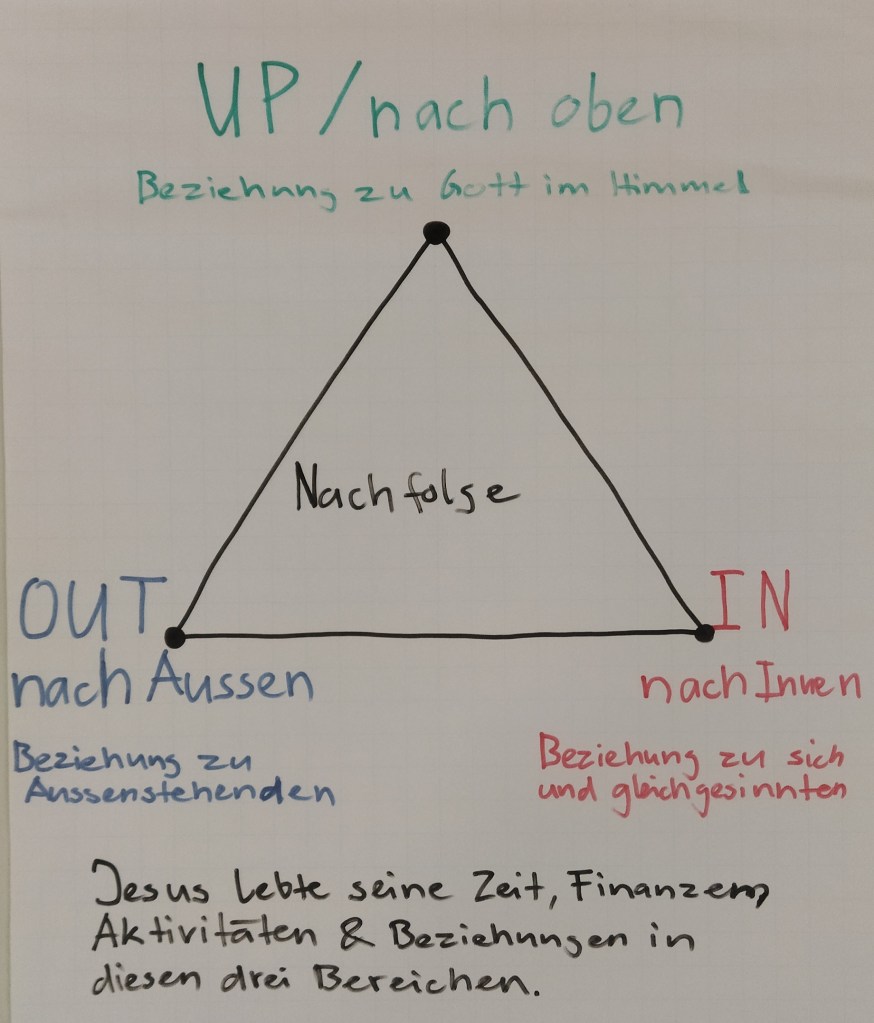 UP / nach oben
Beziehung zu Gott im Himmel
Nachfolge
OUT
nach Aussen
Beziehung zu
Aussenstehenden
IN
nach Innen
Beziehung zu sich
und gleichgesinnten
Jesus lebte seine Zeit, Finanzen,
Aktivitäten & Beziehungen in
diesen drei Bereichen.